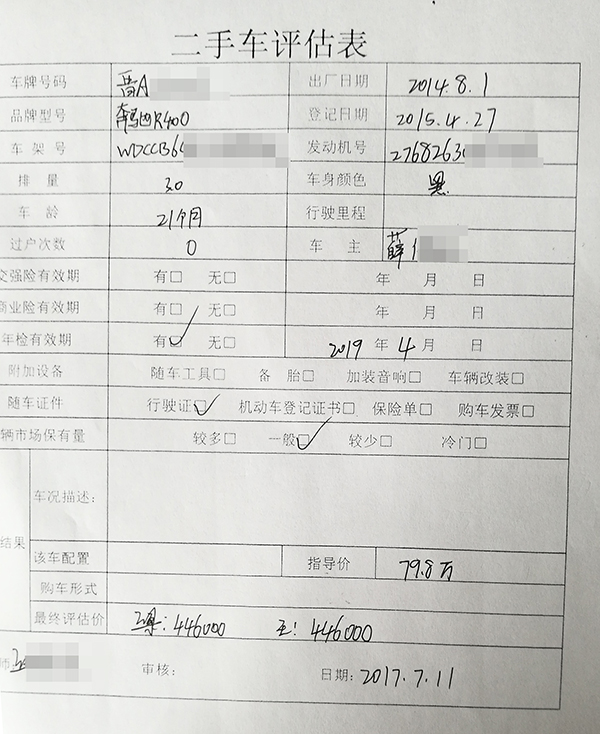 二手车评估表
车牌号码 晋A 出厂日期 2014.8.1
品牌型号 奔驰R400 登记日期 2015.4.27
车架号 WDCCB6 发动机号 2768263
排量 3.0 车身颜色 黑
车龄 21个月 行驶里程
过户次数 0 车主 薛
交强险有效期 有□ 无□ 年 月 日
商业险有效期 有□ 无□ 年 月 日
年检有效期 有☑ 无□ 2019年4月 日
附加设备 随车工具□ 备胎□ 加装音响□ 车辆改装□
随车证件 行驶证☑ 机动车登记证书□ 保险单□ 购车发票□
辆市场保有量 较多□ 一般☑ 较少□ 冷门□
车况描述:
结果
该车配置 指导价 79.8万
购车形式
最终评估价 :446000 :446000
师 审核: 日期:2017.7.11